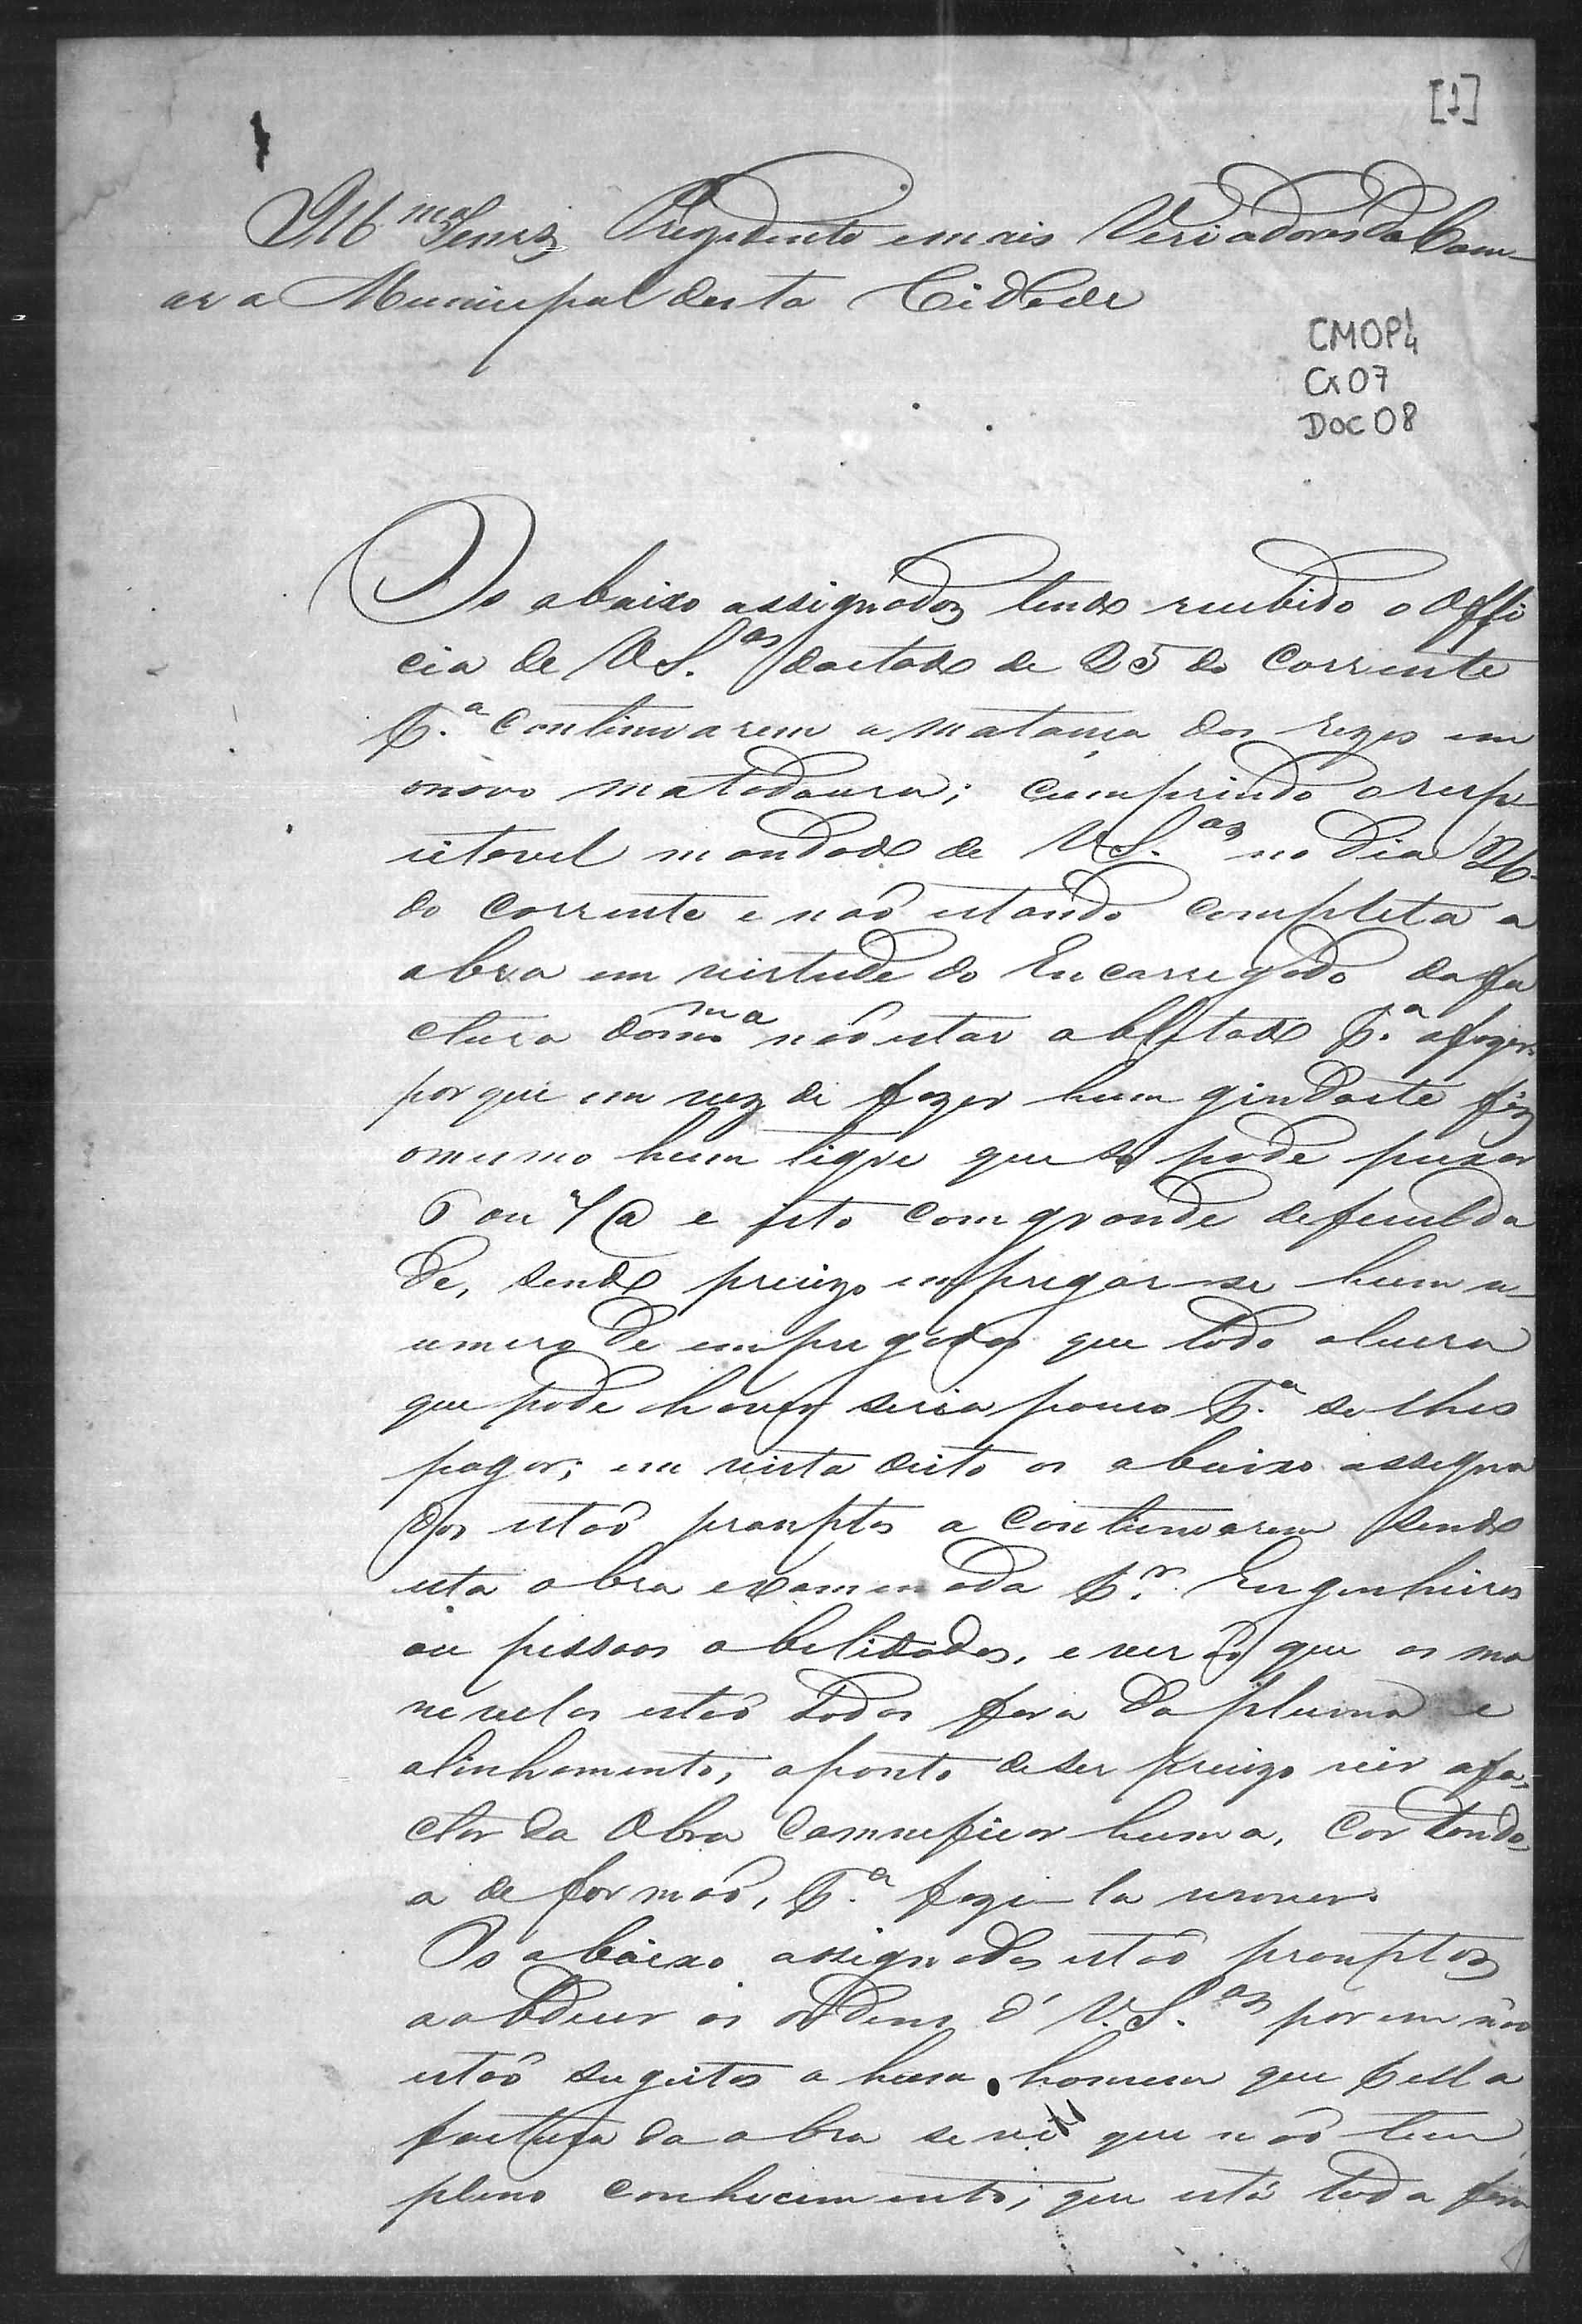 [1]
Ill.mos Senres Prezidente e mais Veriadores da Cam-
ar a Municipal desta Cidade
CMOP4
Cx 07
DOC 08
Os abaixo assignados tendo recebido o Offi
cio de V.S.as dactado de 25 do Corrente
p.a Continuarem a matança das rezes em
o novo matadouro; cumprindo o resp
eitavel mandado de V.S.as no dia 26
do corrente e naõ estando completa a
obra em virtude do Encarregado da fa
ctura da m.ma naõ estar ablitado p.a a fazer
por que em vez de fazer hum gindaste fez
o mesmo hum sigre que só pode puxar
6 ou 7 @ e isto com grande deficulda
de, sendo precizo empregar-se hum n-
umero de empregados que todo o lucro
que pode haver seria pouco p.a se lhes
pagar; em vista disto os abaixo assigna
dos estaõ promptos a Continuarem sendo
esta obra examinada p.r Engenheiros
ou pessoas abelitadas, e veraõ que os ma
nivelos estaõ todos fora da pluma e
alinhamento, aponto de ser precizo vir o fa-
ctor da Obra damnificar huma, Cortando-
a de formaõ, p.a faze-la mover.
Os abaixo assignados estaõ promptos
a obdecer as ordens d' V.S.as porem naõ
estaõ sugeitos a hum homem que pella
factura da obra se vê que naõ tem
pleno conhecimento; que está toda fora